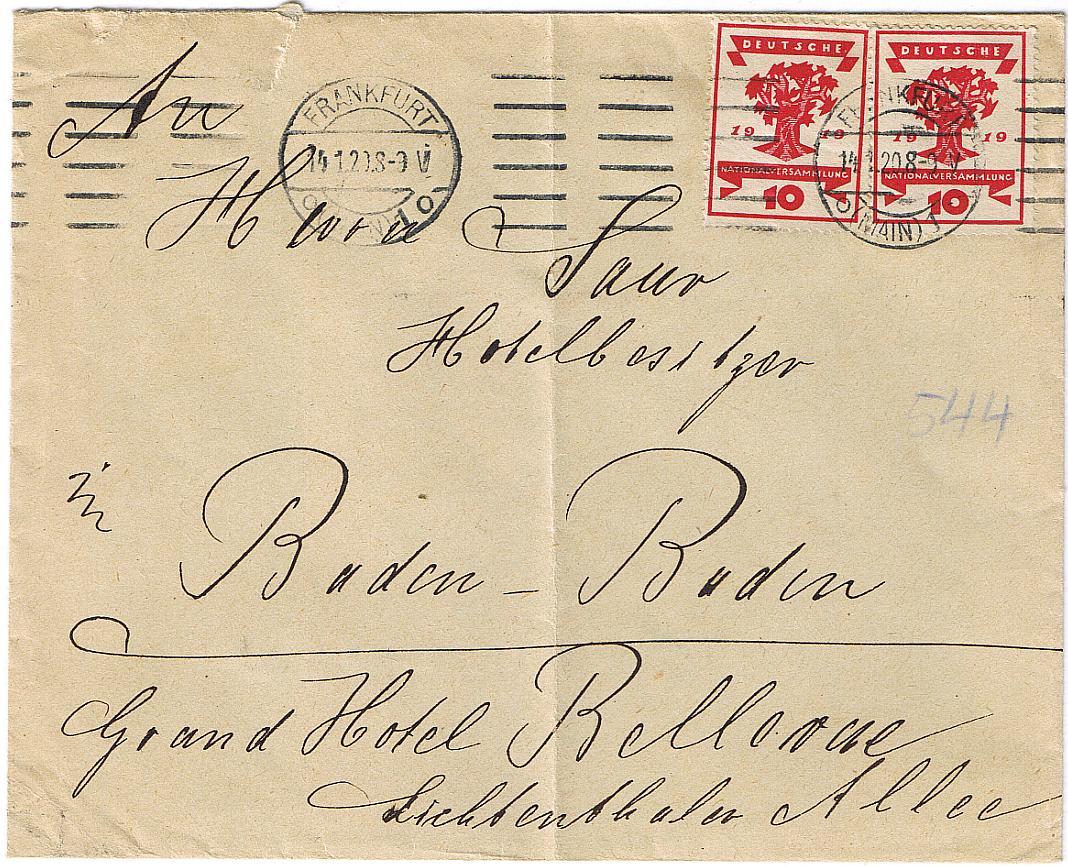 DEUTSCHE DEUTSCHE
An
FRANKFURT FRANKFURT
19 19 19 19
14.1.20.8-9 V 14.1.20.8-9 V
NATIONALVERSAMMLUNG NATIONALVERSAMMLUNG
10 10
(MAIN) 1 (MAIN) 1
Herrn Saur
Hotelbesitzer
544
in
Baden-Baden
Grand Hotel Bellevue
Lichtenthaler Allee